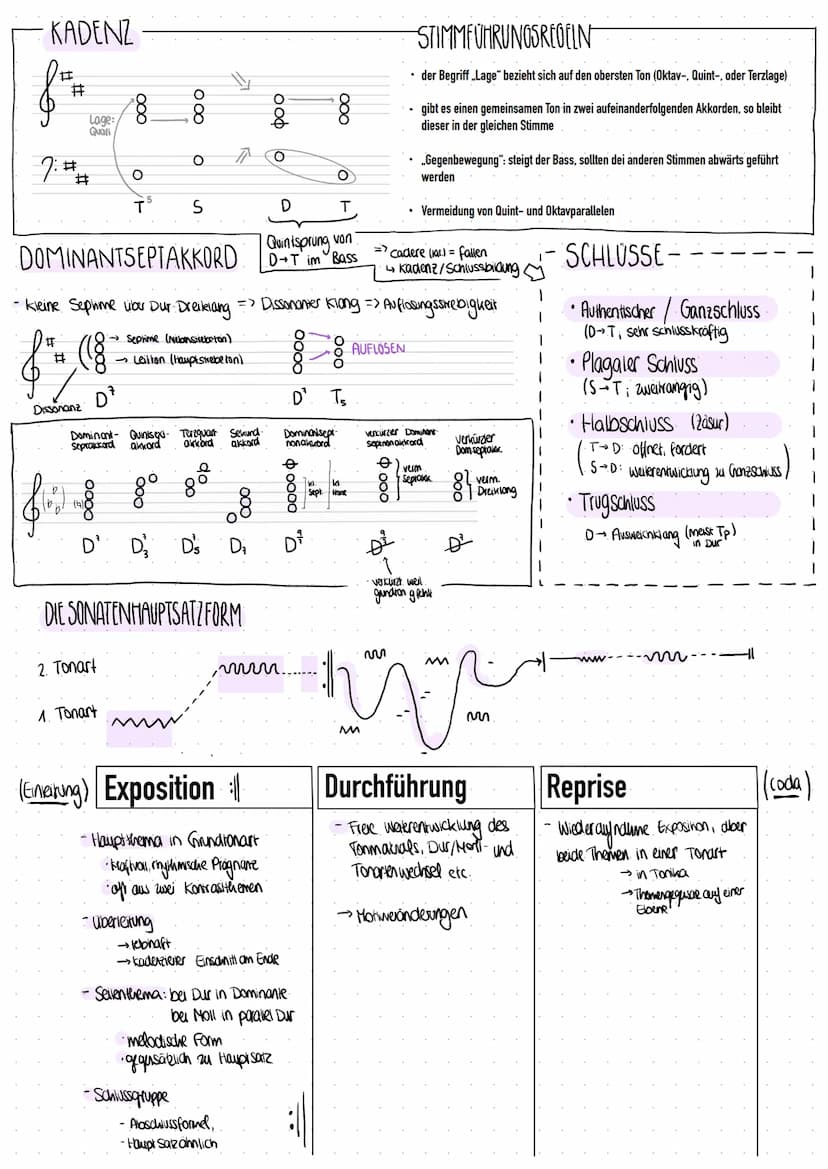 KADENZ
Lage:
T⁵ S D T
Quintsprung von
D→T im Bass
=> cadere (lat.) = fallen
↳ Kadenz/Schlussbildung
STIMMFÜHRUNGSREGELN
• der Begriff „Lage" bezieht sich auf den obersten Ton (Oktav-, Quint-, oder Terzlage)
• gibt es einen gemeinsamen Ton in zwei aufeinanderfolgenden Akkorden, so bleibt
dieser in der gleichen Stimme
• „Gegenbewegung": steigt der Bass, sollten dei anderen Stimmen abwärts geführt
werden
• Vermeidung von Quint- und Oktavparallelen
DOMINANTSEPTAKKORD
- kleine Septime über Dur Dreiklang => Dissonanter Klang => Auflösungsstrebigkeit
→ Septime (Nebenstrebeton)
→ Leitton (Hauptstrebeton)
AUFLÖSEN
Dissonanz D⁷ D⁷ T₃
Dominant-
septakkord
Quintsext-
akkord
Terzquart
akkord
Sekund
akkord
Dominantsept-
nonakkord
verkürzter Dominant-
septnonakkord
verkürzter
Domseptakk.
kl.
Sept.
kl.
None
verm
Septakk.
verm.
Dreiklang
D⁷ D⁷₃ D⁷₅ D₇ D⁹₇ D⁹₇ D⁷
verkürzt weil
grundton fehlt
SCHLÜSSE
• Authentischer / Ganzschluss
(D→T, sehr schlusskräftig
• Plagaler Schluss
(S→T; zweitrangig)
• Halbschluss (Zäsur)
(T→D: öffnet, fordert
S→D: Weiterentwicklung zu Ganzschluss)
• Trugschluss
D→ Ausweichklang (meist Tp)
in Dur
DIE SONATENHAUPTSATZFORM
2. Tonart
1. Tonart
(Einleitung)
Exposition :||
- Hauptthema in Grundtonart
• Motivon, rhythmische Prägnanz
• oft aus zwei Kontrastthemen
- Überleitung
→ lebhaft
→ kadenzierter Einschnitt am Ende
- Seitenthema: bei Dur in Dominante
bei Moll in parallel Dur
• melodische Form
• gegensätzlich zu Hauptsatz
- Schlussgruppe
- Abschlussformel,
- Hauptsatzähnlich
Durchführung
- Freie Weiterentwicklung des
Tonmaterials, Dur/Moll- und
Tonartenwechsel etc.
→ Motivveränderungen
Reprise
- Wiederaufnahme Exposition, aber
beide Themen in einer Tonart
→ in Tonika
→ auf einer
Ebene
(Coda)